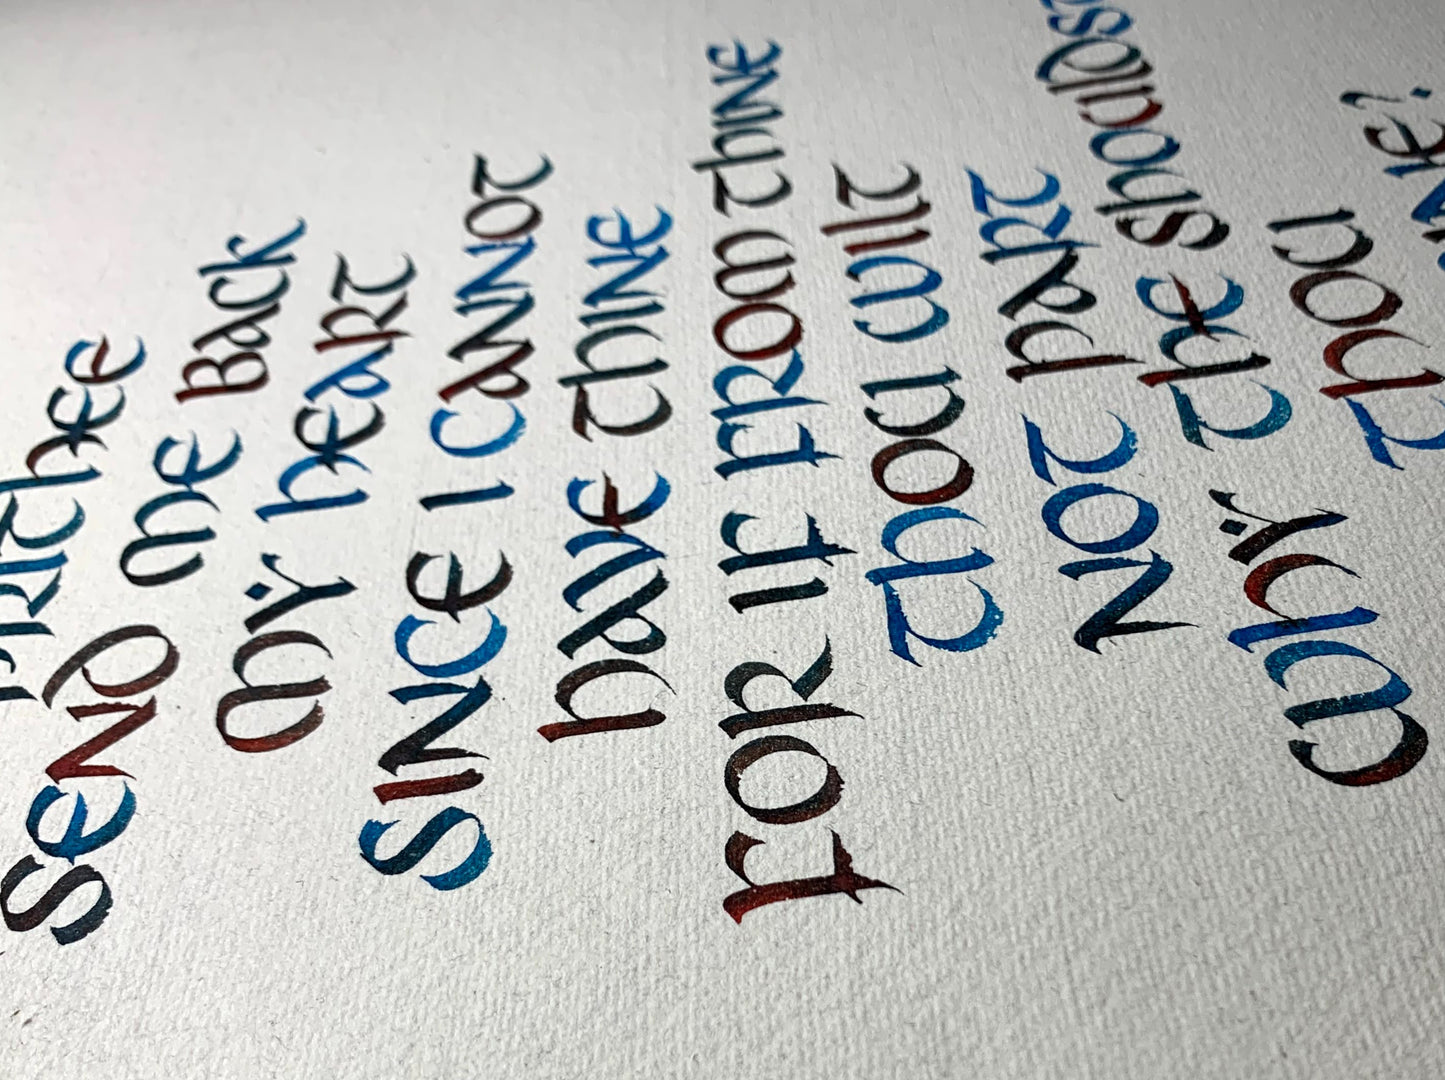 PRITHEE
SEND ME BACK
MY HEART
SINCE I CANNOT
HAVE THINE
FOR IF FROM THINE
THOU WILT
NOT PART
WHY THE
THOU